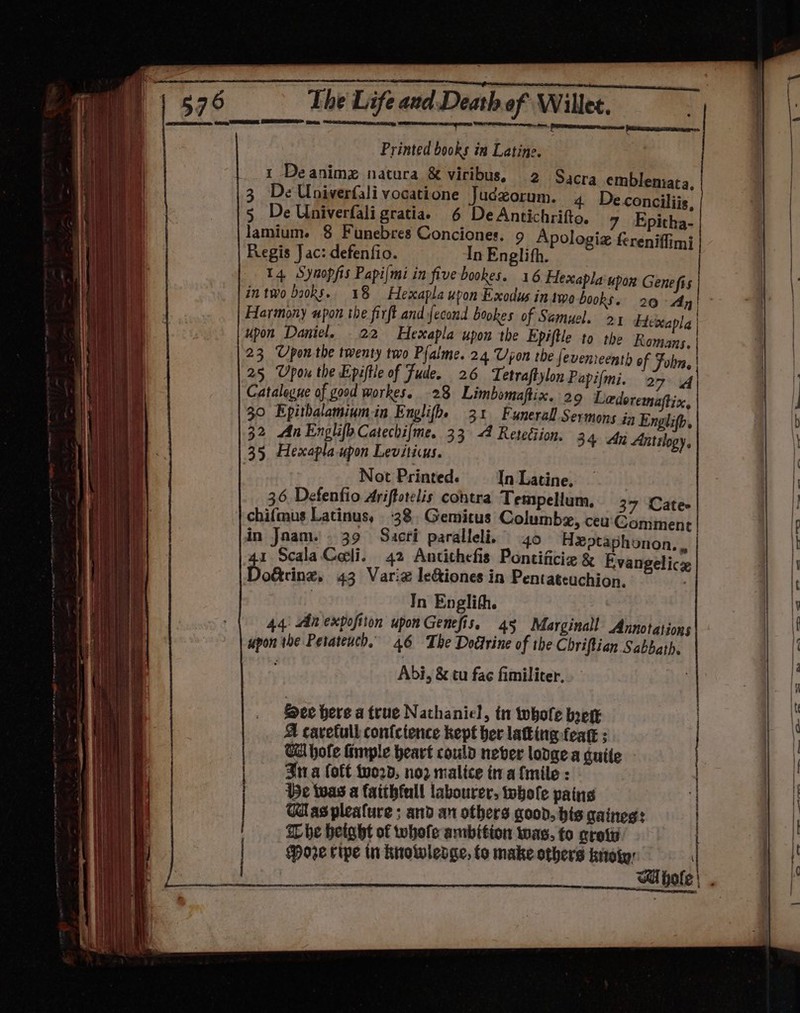 576 The Life and Death of Willet.
Printed books in Latine.
1 De animæ natura & viribus. 2 Sacra emblemata.
3 De Univerſali vocatione Judæorum. 4 De conciliis,
5 De Univerſali gratia. 6 De Antichriſto. 7 Epitha-
lamium. 8 Funebres Conciones. 9 Apologiæ ſereniſſimi
Regis Jac: defenſio. In Engliſh.
14 Synopſis Papiſmi in five bookes. 16 Hexapla upon Geneſis
in two books. 18 Hexapla upon Exodus in two books. 20 An
Harmony upon the firſt and ſecond bookes of Samuel. 21 Hexapla
upon Daniel. 22 Hexapla upon the Epiſtle to the Romans.
23 Upon the twenty two Pſalme. 24 Upon the ſeventeenth of John,
25 Upon the Epiſtle of Jude. 26 Tetraſtylon Papiſmi. 27 A
Catalogue of good workes. 28 Limbomaſtix. 29 Lœdoremaſtix,
30 Epithalamium in Engliſh. 31 Funerall Sermons in Engliſh,
32 An Engliſh Catechiſme. 33 A Retection. 34 An Antilogy.
35 Hexapla upon Leviticus.
Not Printed. In Latine.
36 Defenſio Ariſtotelis contra Tempellum, 37 Cate-
chiſmus Latinus, 38 Gemitus Columbæ, ceu Comment
in Jnam. 39 Sacri paralleli. 40 Hæptaphonon.
41 Scala Cœli. 42 Antitheſis Pontificiæ & Evangelicæ
Doctrinæ. 43 Variæ lectiones in Pentateuchion.
In Engliſh.
44 An expoſition upon Geneſis. 45 Marginall Annotations
upon the Petateuch. 46 The Doctrine of the Chriſtian Sabbath.
Abi, & tu fac ſimiliter.
See here a true Nathaniel, in whoſe breſt
A carefull conſcience kept her laſting feaſt;
Whoſe ſimple heart could never lodge a guile
In a ſoft word, nor malice in a ſmile:
He was a faithfull labourer, whoſe pains
Was pleaſure; and an others good, his gaines:
The height of whoſe ambition was, to grow
More ripe in knowledge, to make others know:
Whoſe